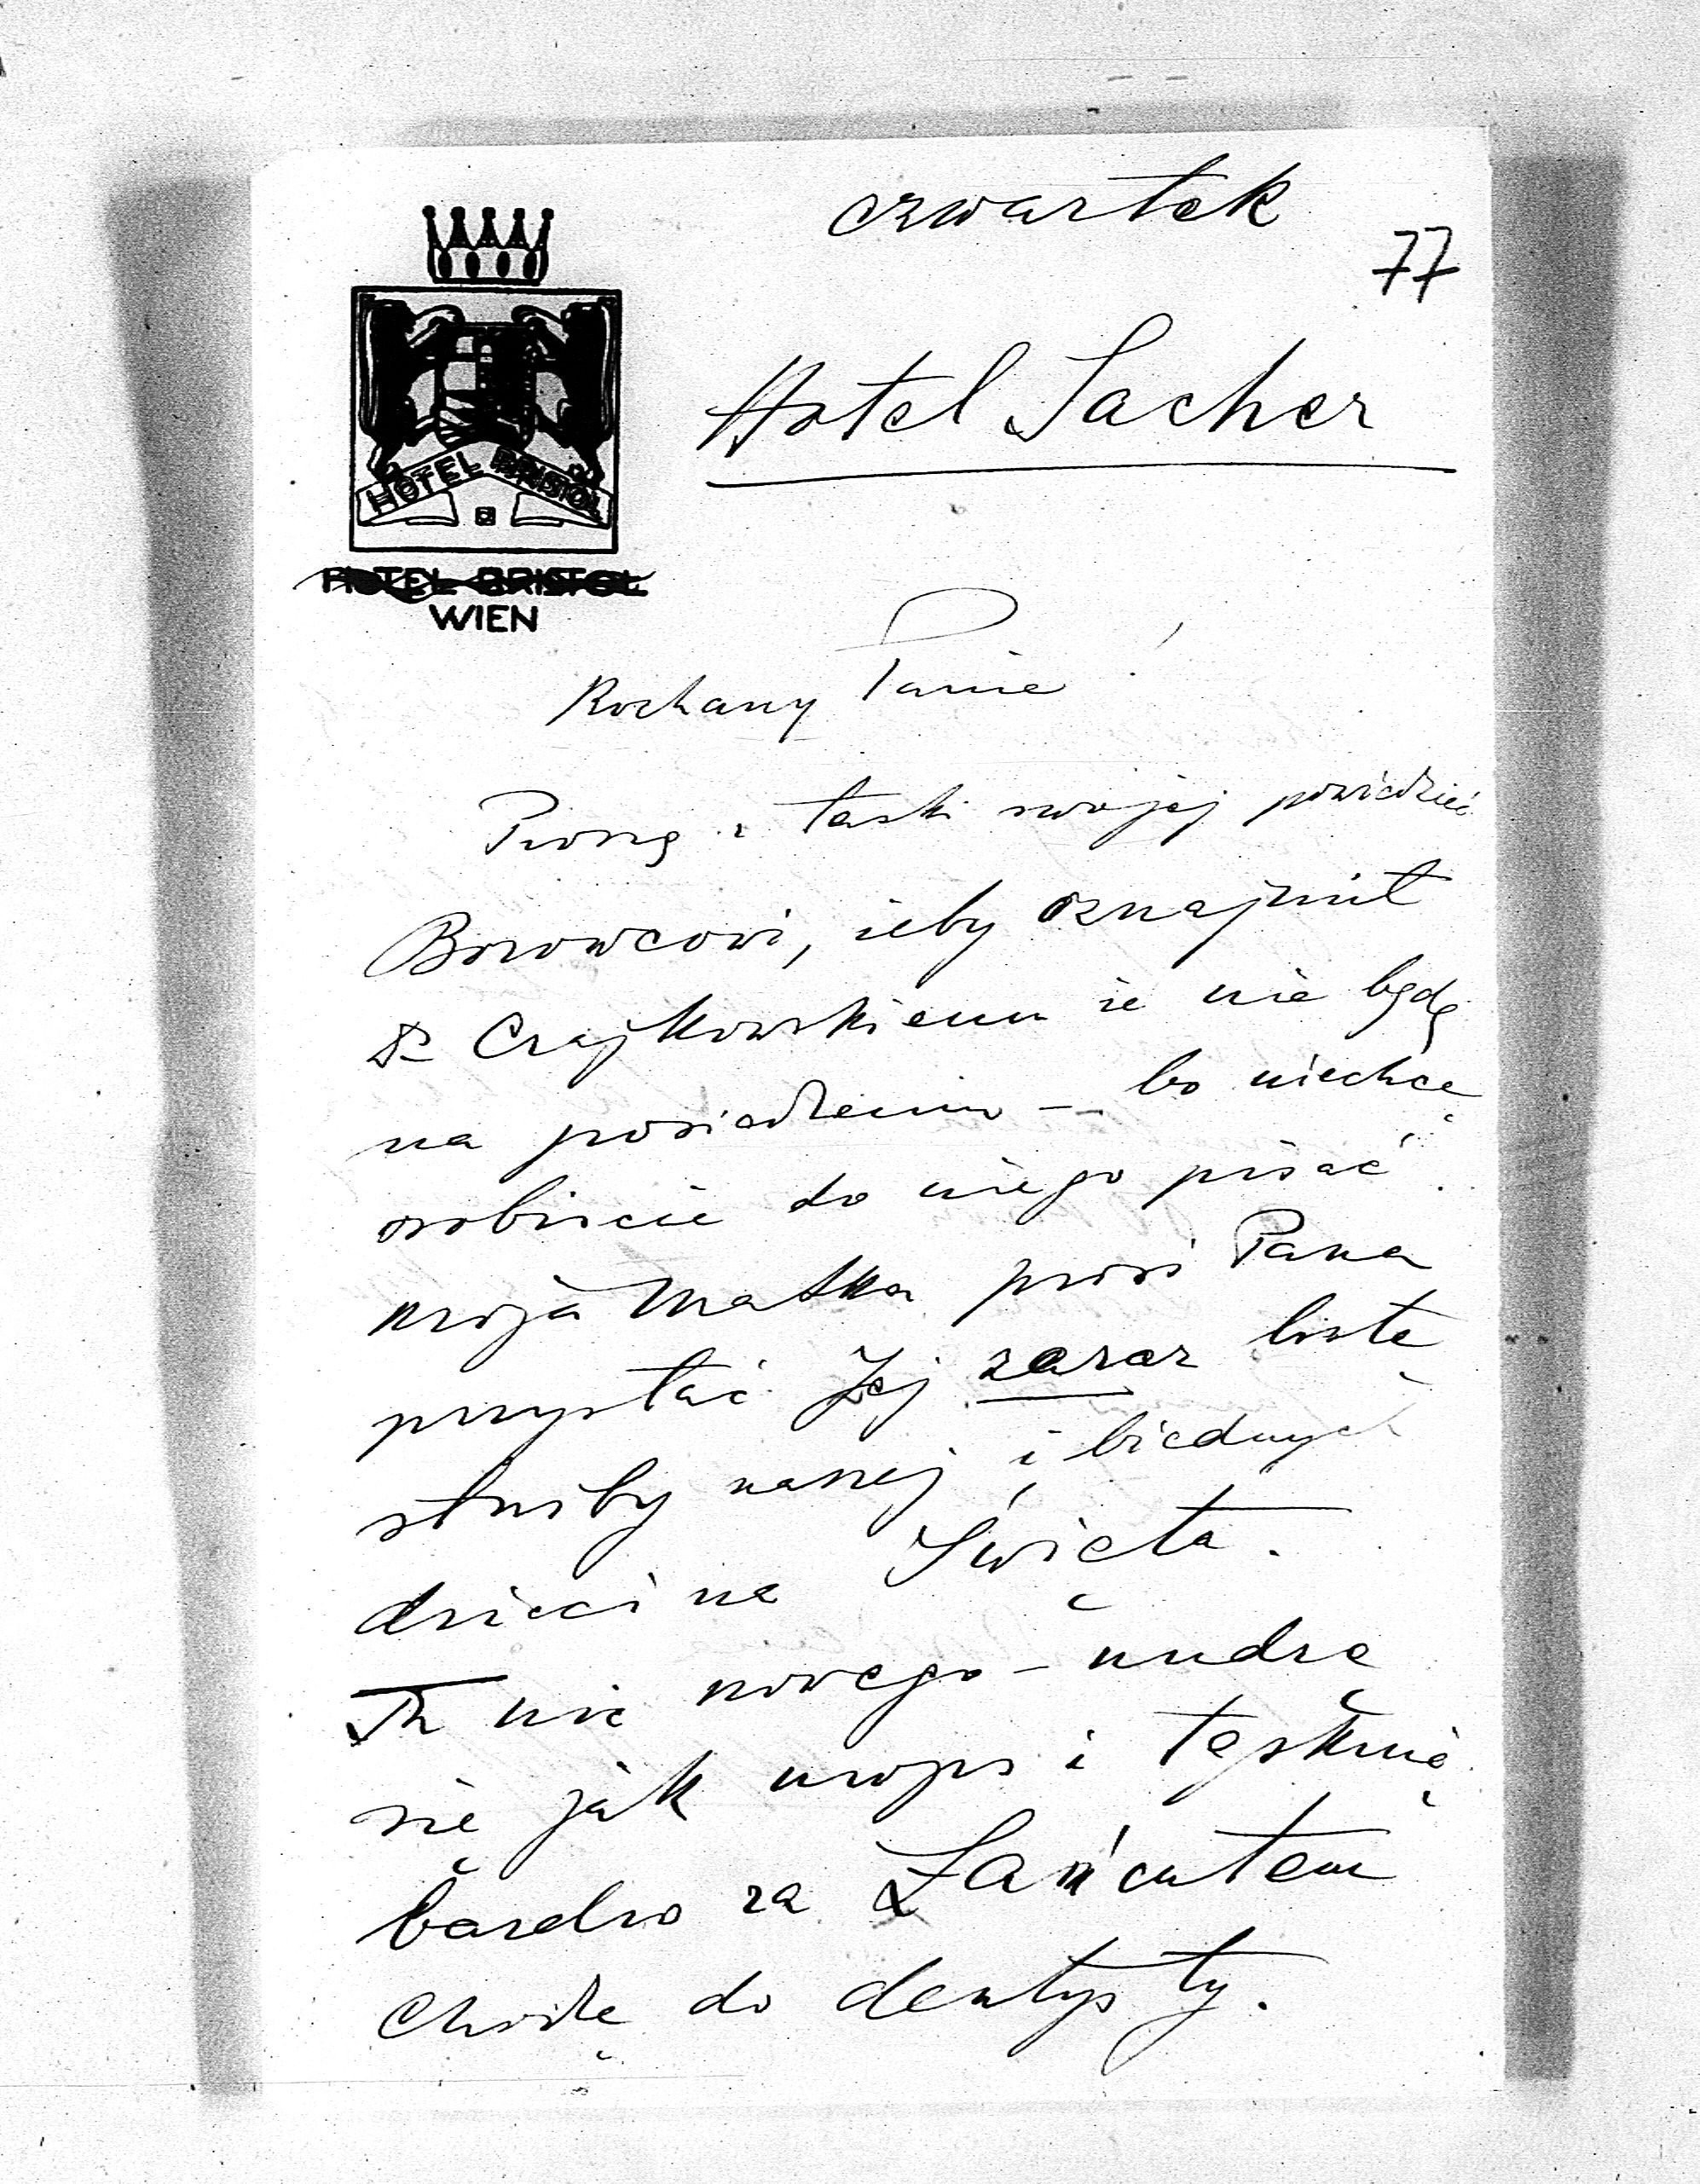 czwartek
77
Hotel Sacher
HOTEL BRISTOL
HOTEL BRISTOL
WIEN
Kochany Panie!
Proszę z łaski swojej powiedzieć
Borowcowi, żeby oznajmił
Dr Czajkowskiemu że nie będę
na posiedzeniu — bo niechcę
osobiście do niego pisać.
moja Matka prosi Pana
przysłać Jej zaraz listę
służby naszej i biednych
dzieci na Święta.
Tu nic nowego — nudzę
się jak mops i tęsknię
bardzo za Łańcutem
Chodzę do dentysty.